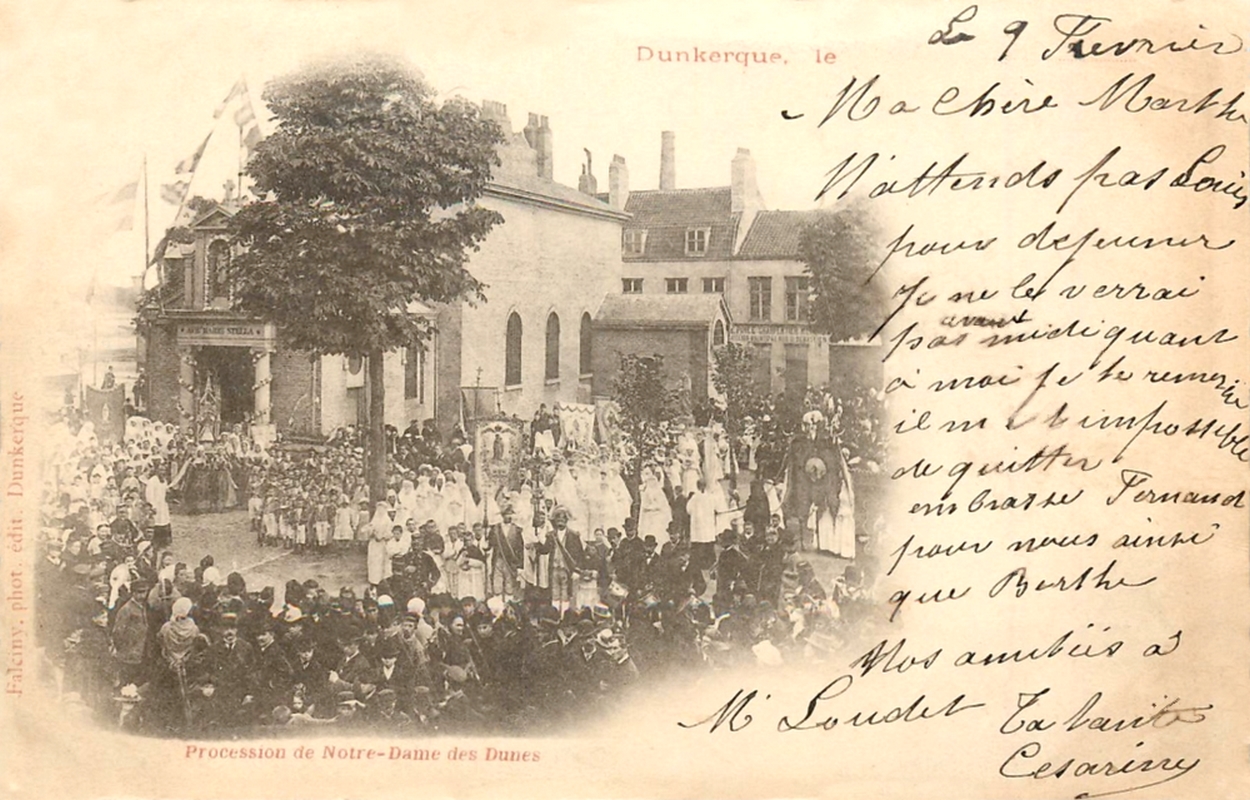 Dunkerque, le
Le 9 Fevrier
Ma Chère Marthe
N'attends pas Louis
pour dejeuner
Je ne le verrai
pas avant midi quant
à moi je te remercie
il m'est impossible
de quitter
embrasse Fernand
pour nous ainsi
que Berthe
Nos amitiés à
Mr Loudet Ta tante
Cesarine
AVE MARIS STELLA
Falciny, phot. édit. Dunkerque
Procession de Notre-Dame des Dunes